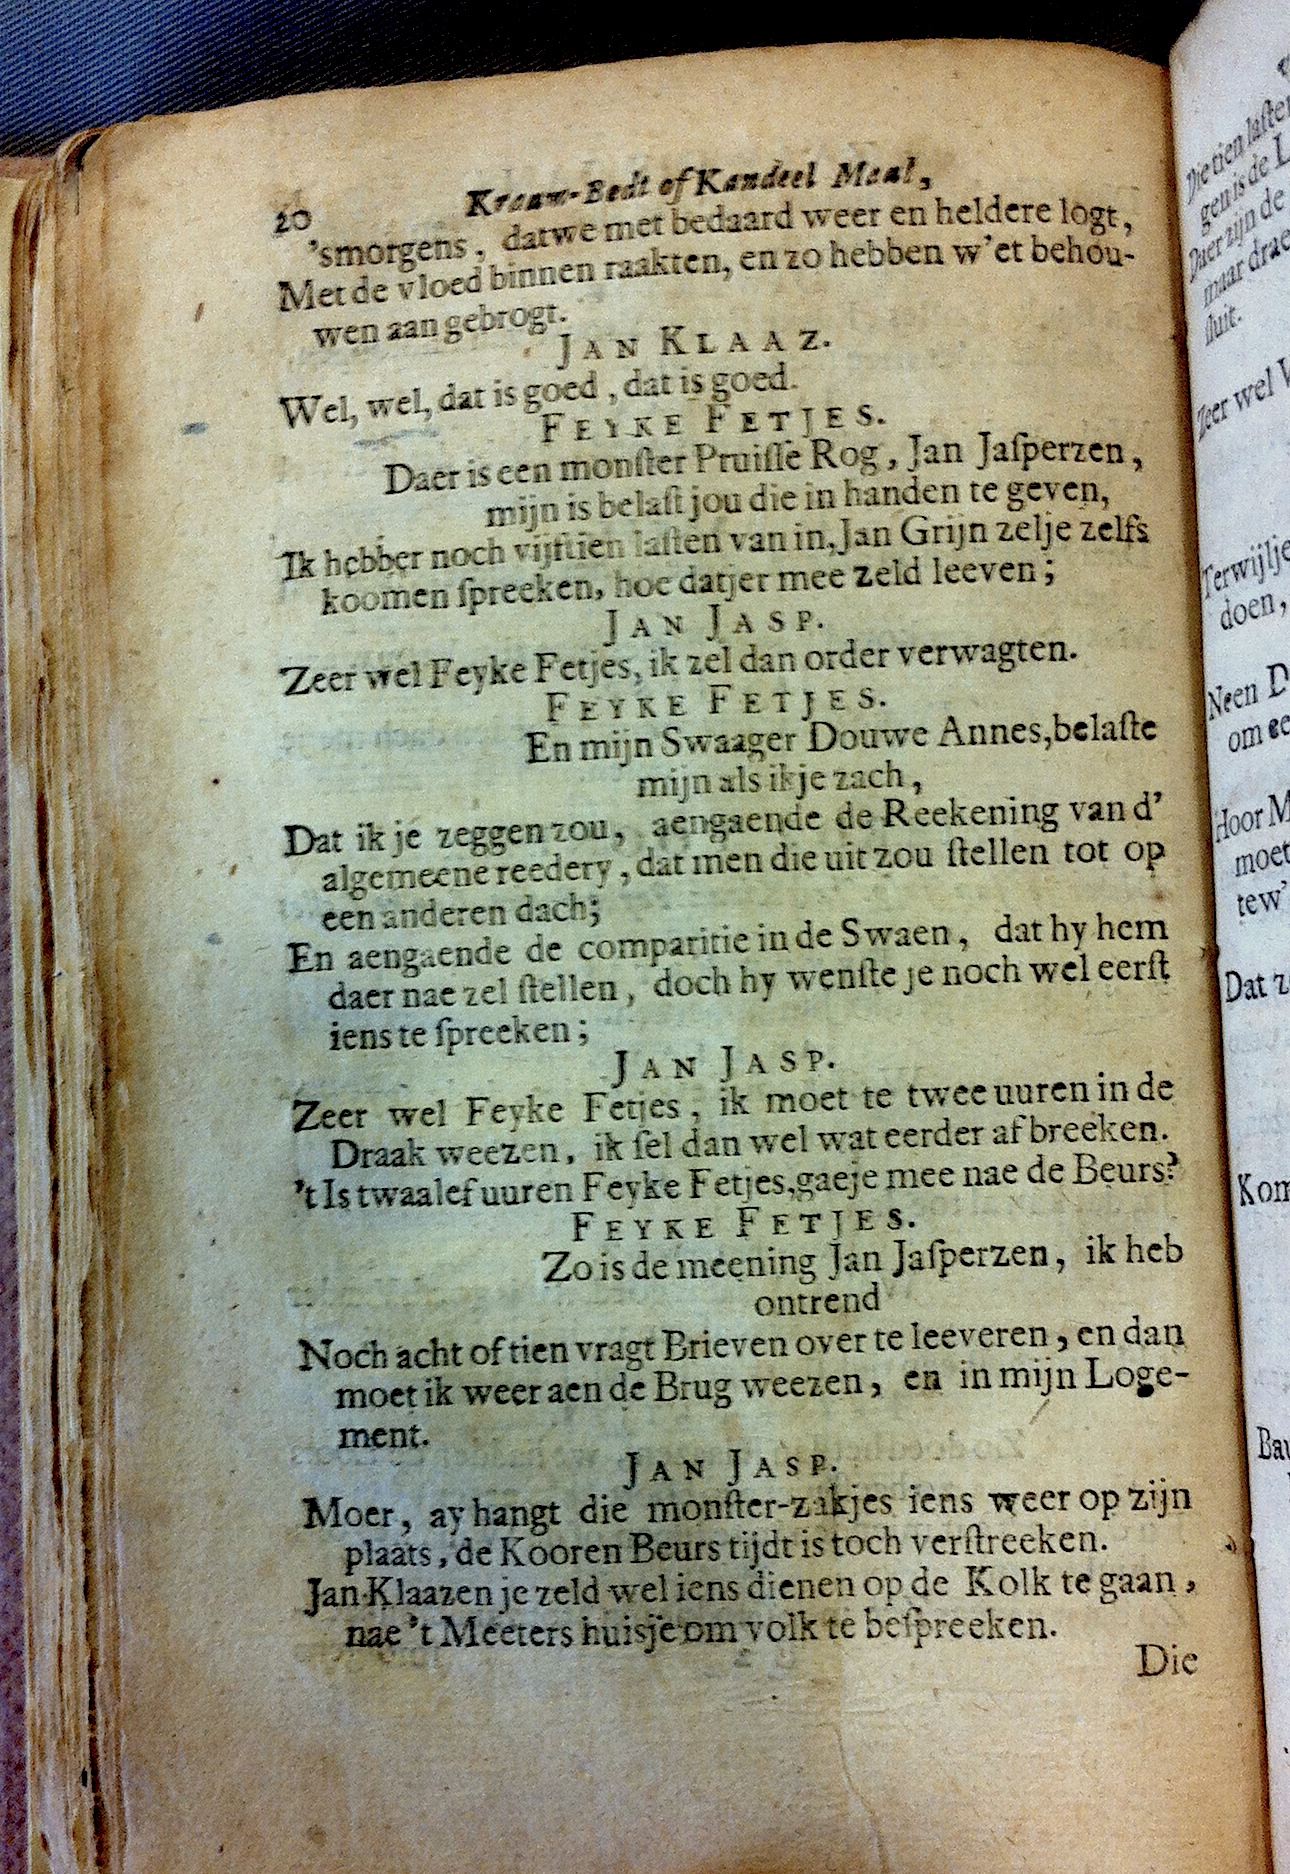 20
Kraam-Bedt of Kandeel Maal,
'smorgens, datwe met bedaard weer en heldere logt,
Met de vloed binnen raakten, en zo hebben w'et behou-
wen aan gebrogt.
JAN KLAAZ.
Wel, wel, dat is goed, dat is goed.
FEYKE FETJES.
Daer is een monſter Pruiſſe Rog, Jan Jaſperzen,
mijn is belaſt jou die in handen te geven,
Ik hebber noch vijftien laſten van in, Jan Grijn zelje zelfs
koomen ſpreeken, hoe datjer mee zeld leeven;
JAN JASP.
Zeer wel Feyke Fetjes, ik zel dan order verwagten.
FEYKE FETJES.
En mijn Swaager Douwe Annes, belaſte
mijn als ik je zach,
Dat ik je zeggen zou, aengaende de Reekening van d'
algemeene reedery, dat men die uit zou ſtellen tot op
een anderen dach;
En aengaende de comparitie in de Swaen, dat hy hem
daer nae zel ſtellen, doch hy wenſte je noch wel eerſt
iens te ſpreeken;
JAN JASP.
Zeer wel Feyke Fetjes, ik moet te twee uuren in de
Draak weezen, ik ſel dan wel wat eerder af breeken.
't Is twaalef uuren Feyke Fetjes, gaeje mee nae de Beurs?
FEYKE FETJES.
Zo is de meening Jan Jaſperzen, ik heb
ontrend
Noch acht of tien vragt Brieven over te leeveren, en dan
moet ik weer aen de Brug weezen, en in mijn Loge-
ment.
JAN JASP.
Moer, ay hangt die monſter-zakjes iens weer op zijn
plaats, de Kooren Beurs tijdt is toch verſtreeken.
Jan Klaazen je zeld wel iens dienen op de Kolk te gaan,
nae 't Meeters huisje om volk te beſpreeken.
Die
Die tien laſten
gen is de
Daer zijn de
maar drae
ſluit.
Zeer wel
Terwijlje
doen,
Neen D
om ee
Hoor M
moet
tew'
Dat z
Kom
Bau